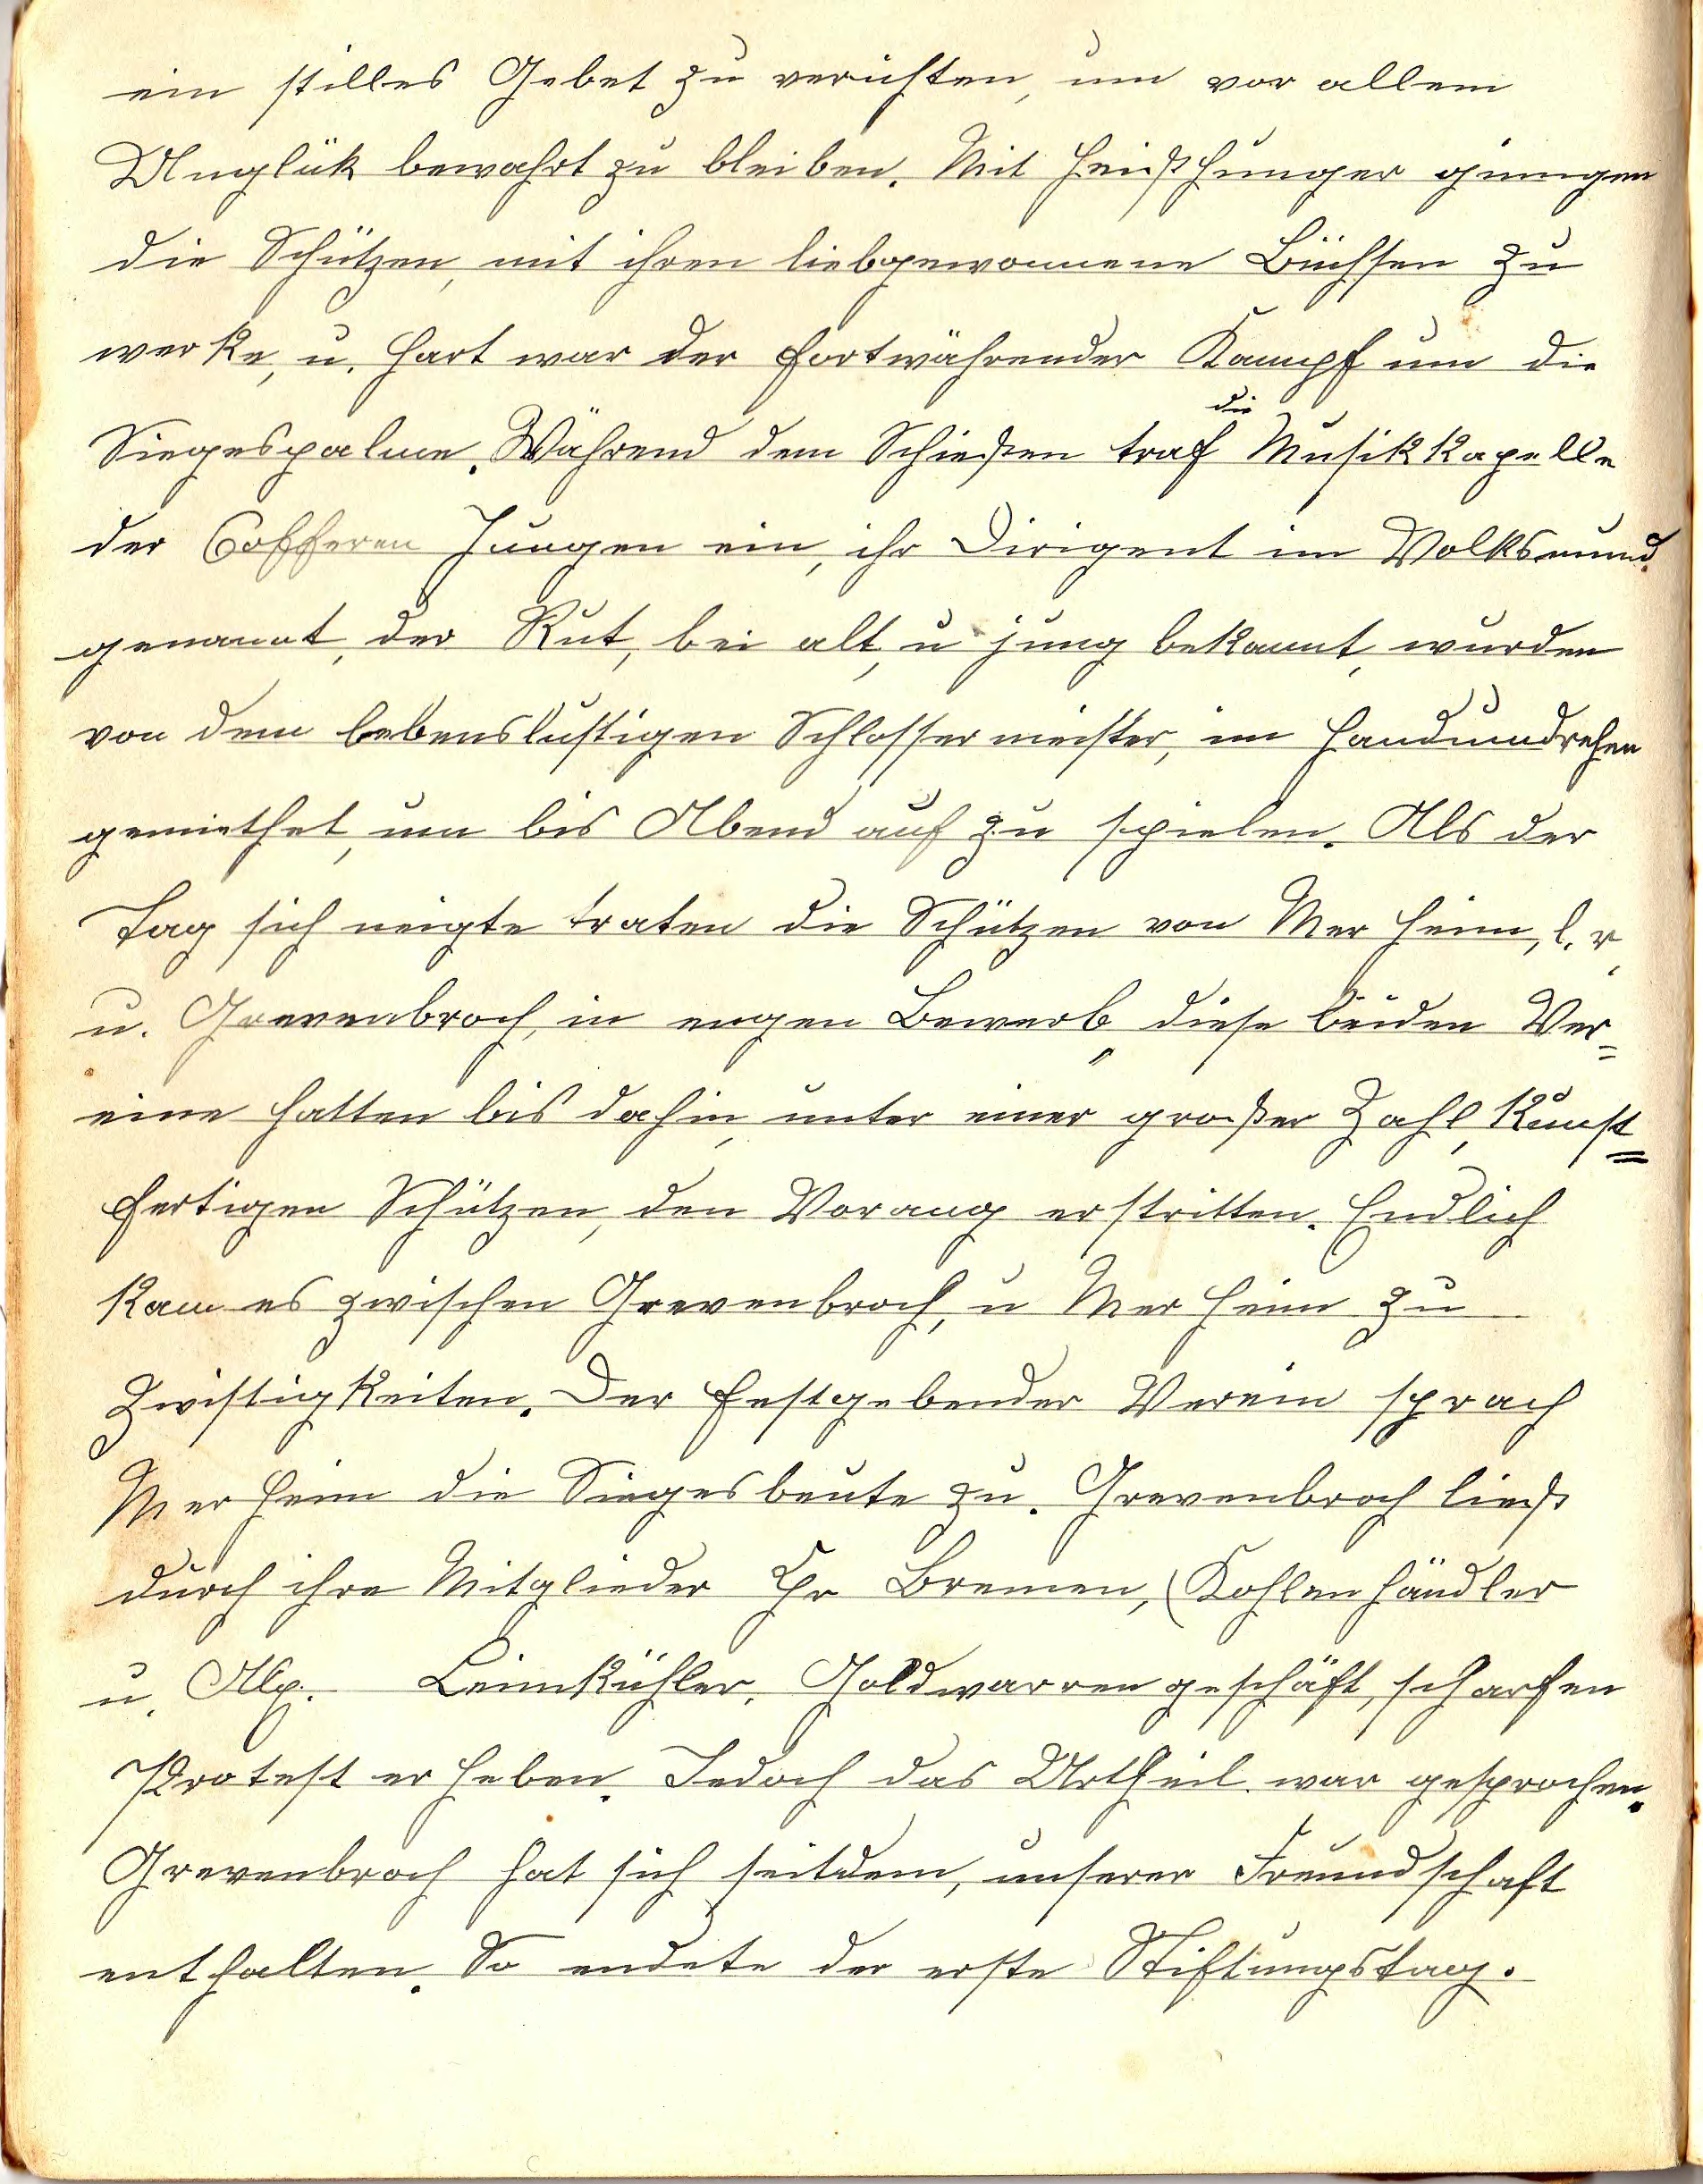 ein stilles Gebet zu verichten, um vor allem
Unglük bewahrt zu bleiben. Mit Heißhunger giengen
die Schützen, mit ihren liebgewonnene Büchsen zu
werke, u. hart war der fortwährender Kampf um die
Siegespalme. Während dem Schießen traf die Musikkapelle
der Efferen Jungen ein, ihr Dirigent im Volksmund.
genannt, der Rut, bei alt, u jung bekannt, wurden
von dem lebenslustigen Schlossermeister, im Handumdrehen
gemiethet, um bis Abend auf zu spielen. Als der
Tag sich neigte traten die Schützen von Merheim, l. r.
u. Grevenbroch, in engen Bewerb, diese beiden Ver=
eine hatten bis dahin, unter einer großer Zahl, Kunst=
fertigen Schützen, den Vorang erstritten. Endlich
kam es zwischen Grevenbroch, u Merheim zu
Zwistigkeiten. Der festgebender Verein sprach
Merheim die Siegesbeute zu. Grevenbroch ließ
durch ihre Mitglieder Hr Bremen, (Kohlenhändler
u. Alx. Leimkühler, Goldwarrengeschäft, scharfen
Protest erheben. Jedoch das Urtheil war gesprochen.
Grevenbroch hat sich seitdem, unserer Freundschaft
enthalten. So endete der erste Stiftungstag.